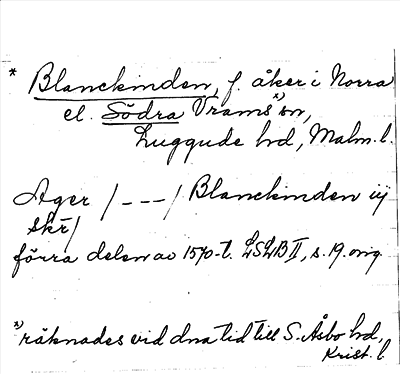 * Blanckinden, f. åker i Norra
el. Södra Vrams x) sn,
Luggude hd, Malm. l.
Ager /---/ Blanckinden iij
skr/
förra delen av 1570-t. LSLB II, s. 19. orig.
x) räknades vid dna tid till S. Åsbo hd,
Krist. l